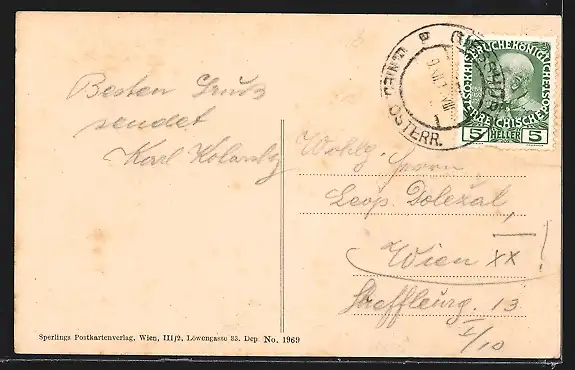 Besten Gruß
sendet
Karl
Wohlg. Herrn
Leop. Dolezal,
Wien XX!
13
I/10
ÖSTERR.
KAISERLICHE KÖNIGLICHE
ÖSTERREICHISCHE POST
5 HELLER 5
Sperlings Postkartenverlag, Wien, III/2, Löwengasse 33. Dep No. 1969